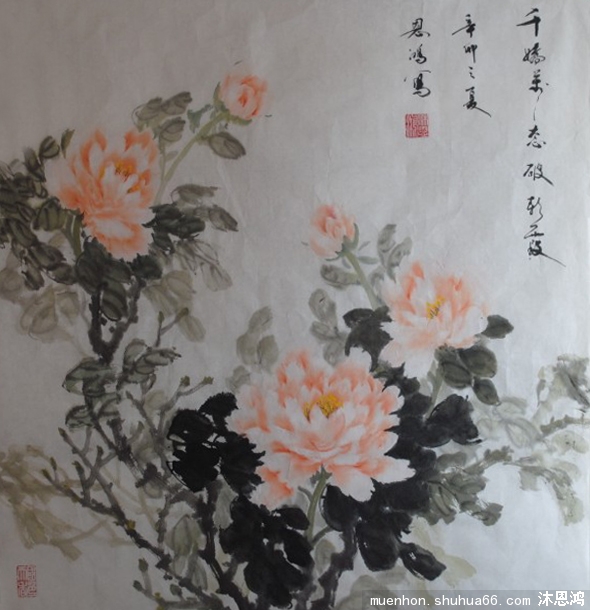 千嬌萬态破朝霞
辛卯之夏
恩鴻寫
muenhon.shuhua66.com 沐恩鸿